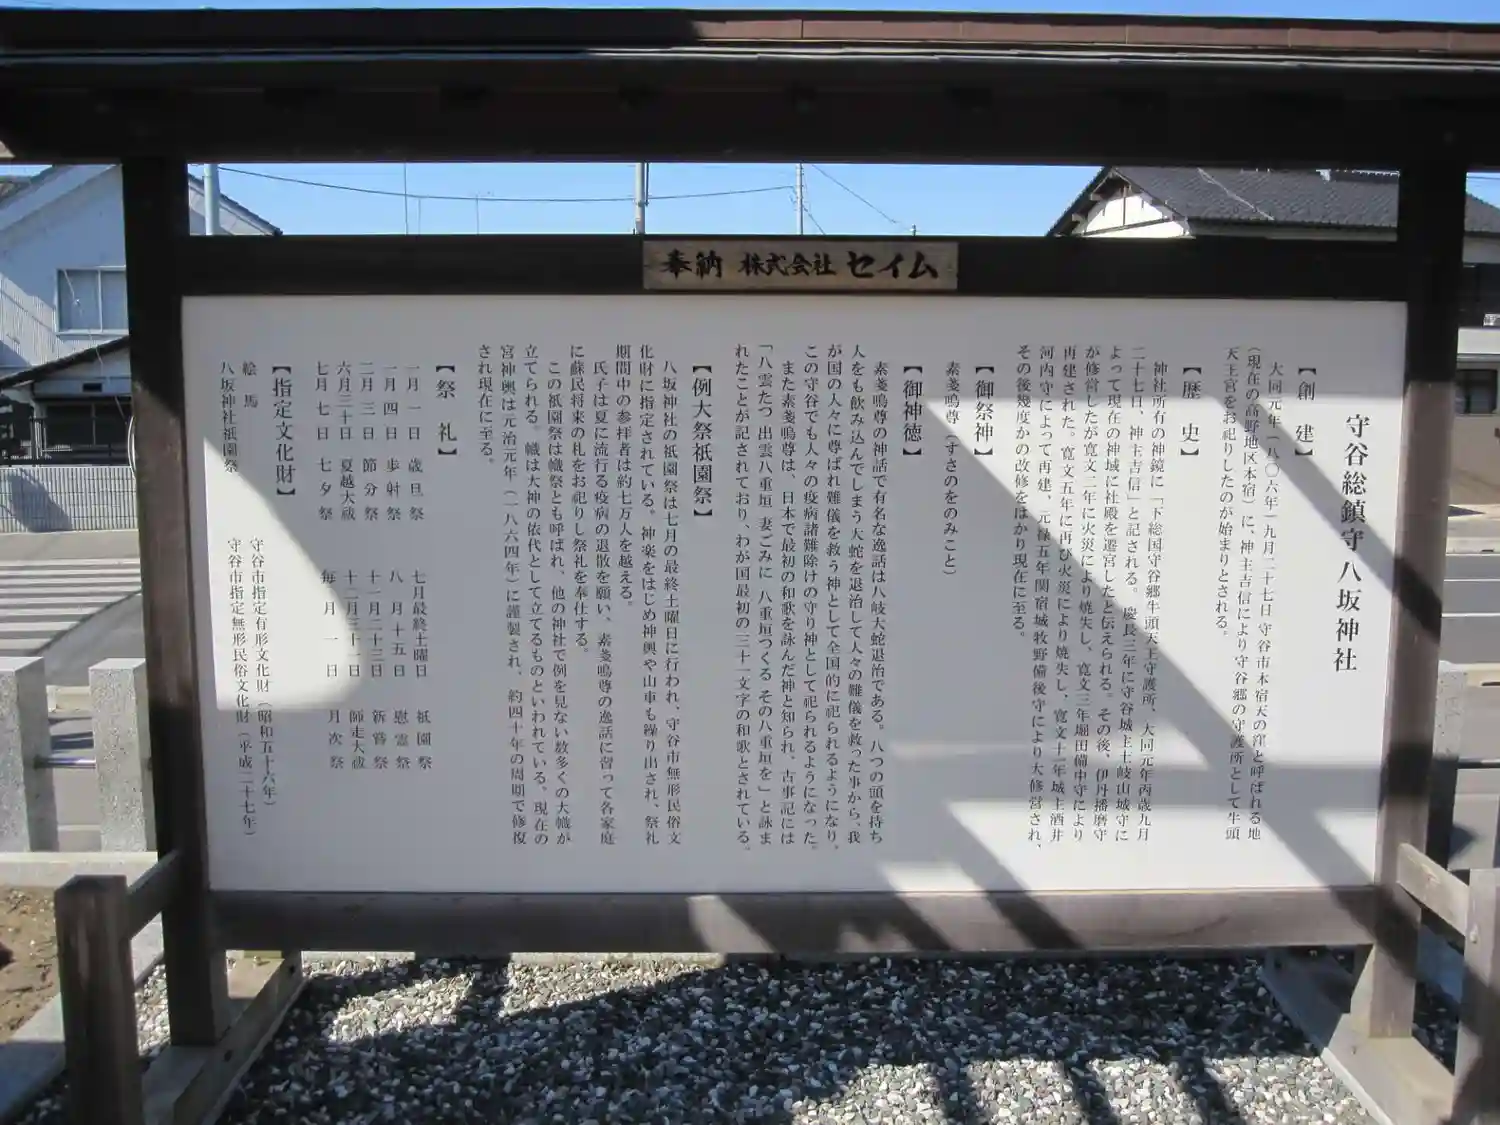 奉納 株式会社 セイム
守谷総鎮守八坂神社
【創 建】
大同元年(八〇六年)九月二十七日 守谷市本宿天の窪と呼ばれる地
(現在の高野地区本宿)に、神主吉信により守谷郷の守護所として牛頭
天王宮をお祀りしたのが始まりとされる。
【歴 史】
神社所有の神鏡に「下総国守谷郷牛頭天王守護所、大同元年丙歳九月
二十七日、神主吉信」と記される。慶長三年に守谷城主土岐山城守に
よって現在の神域に社殿を遷宮したと伝えられる。その後、伊丹播磨守
が修営したが寛文二年に火災により焼失し、寛文三年堀田備中守により
再建された。寛文五年に再び火災により焼失し、寛文十一年城主酒井
河内守によって再建、元禄五年関宿城牧野備後守により大修営され、
その後幾度かの改修をはかり現在に至る。
【御祭神】
素戔嗚尊(すさのをのみこと)
【御神徳】
素戔嗚尊の神話で有名な逸話は八岐大蛇退治である。八つの頭を持ち
人をも飲み込んでしまう大蛇を退治して人々の難儀を救った事から、我
が国の人々に尊ばれ難儀を救う神として全国的に祀られるようになり、
この守谷でも人々の疫病諸難除けの守り神として祀られるようになった。
また素戔嗚尊は、日本で最初の和歌を詠んだ神と知られ、古事記には
「八雲たつ 出雲八重垣 妻ごみに 八重垣つくる その八重垣を」と詠ま
れたことが記されており、わが国最初の三十一文字の和歌とされている。
【例大祭祇園祭】
八坂神社の祇園祭は七月の最終土曜日に行われ、守谷市無形民俗文
化財に指定されている。神楽をはじめ神輿や山車も繰り出され、祭礼
期間中の参拝者は約七万人を越える。
氏子は夏に流行る疫病の退散を願い、素戔嗚尊の逸話に習って各家庭
に蘇民将来の札をお祀りし祭礼を奉仕する。
この祇園祭は幟祭とも呼ばれ、他の神社で例を見ない数多くの大幟が
立てられる。幟は大神の依代として立てるものといわれている、現在の
宮神輿は元治元年(一八六四年)に謹製され、約四十年の周期で修復
され現在に至る。
【祭 礼】
一月一日 歳旦祭 七月最終土曜日 祇園祭
一月四日 歩射祭 八月十五日 慰霊祭
二月三日 節分祭 十一月二十三日 新嘗祭
六月三十日 夏越大祓 十二月三十一日 師走大祓
七月七日 七夕祭 毎月一日 月次祭
【指定文化財】
絵馬 守谷市指定有形文化財(昭和五十六年)
八坂神社祇園祭 守谷市指定無形民俗文化財(平成二十七年)